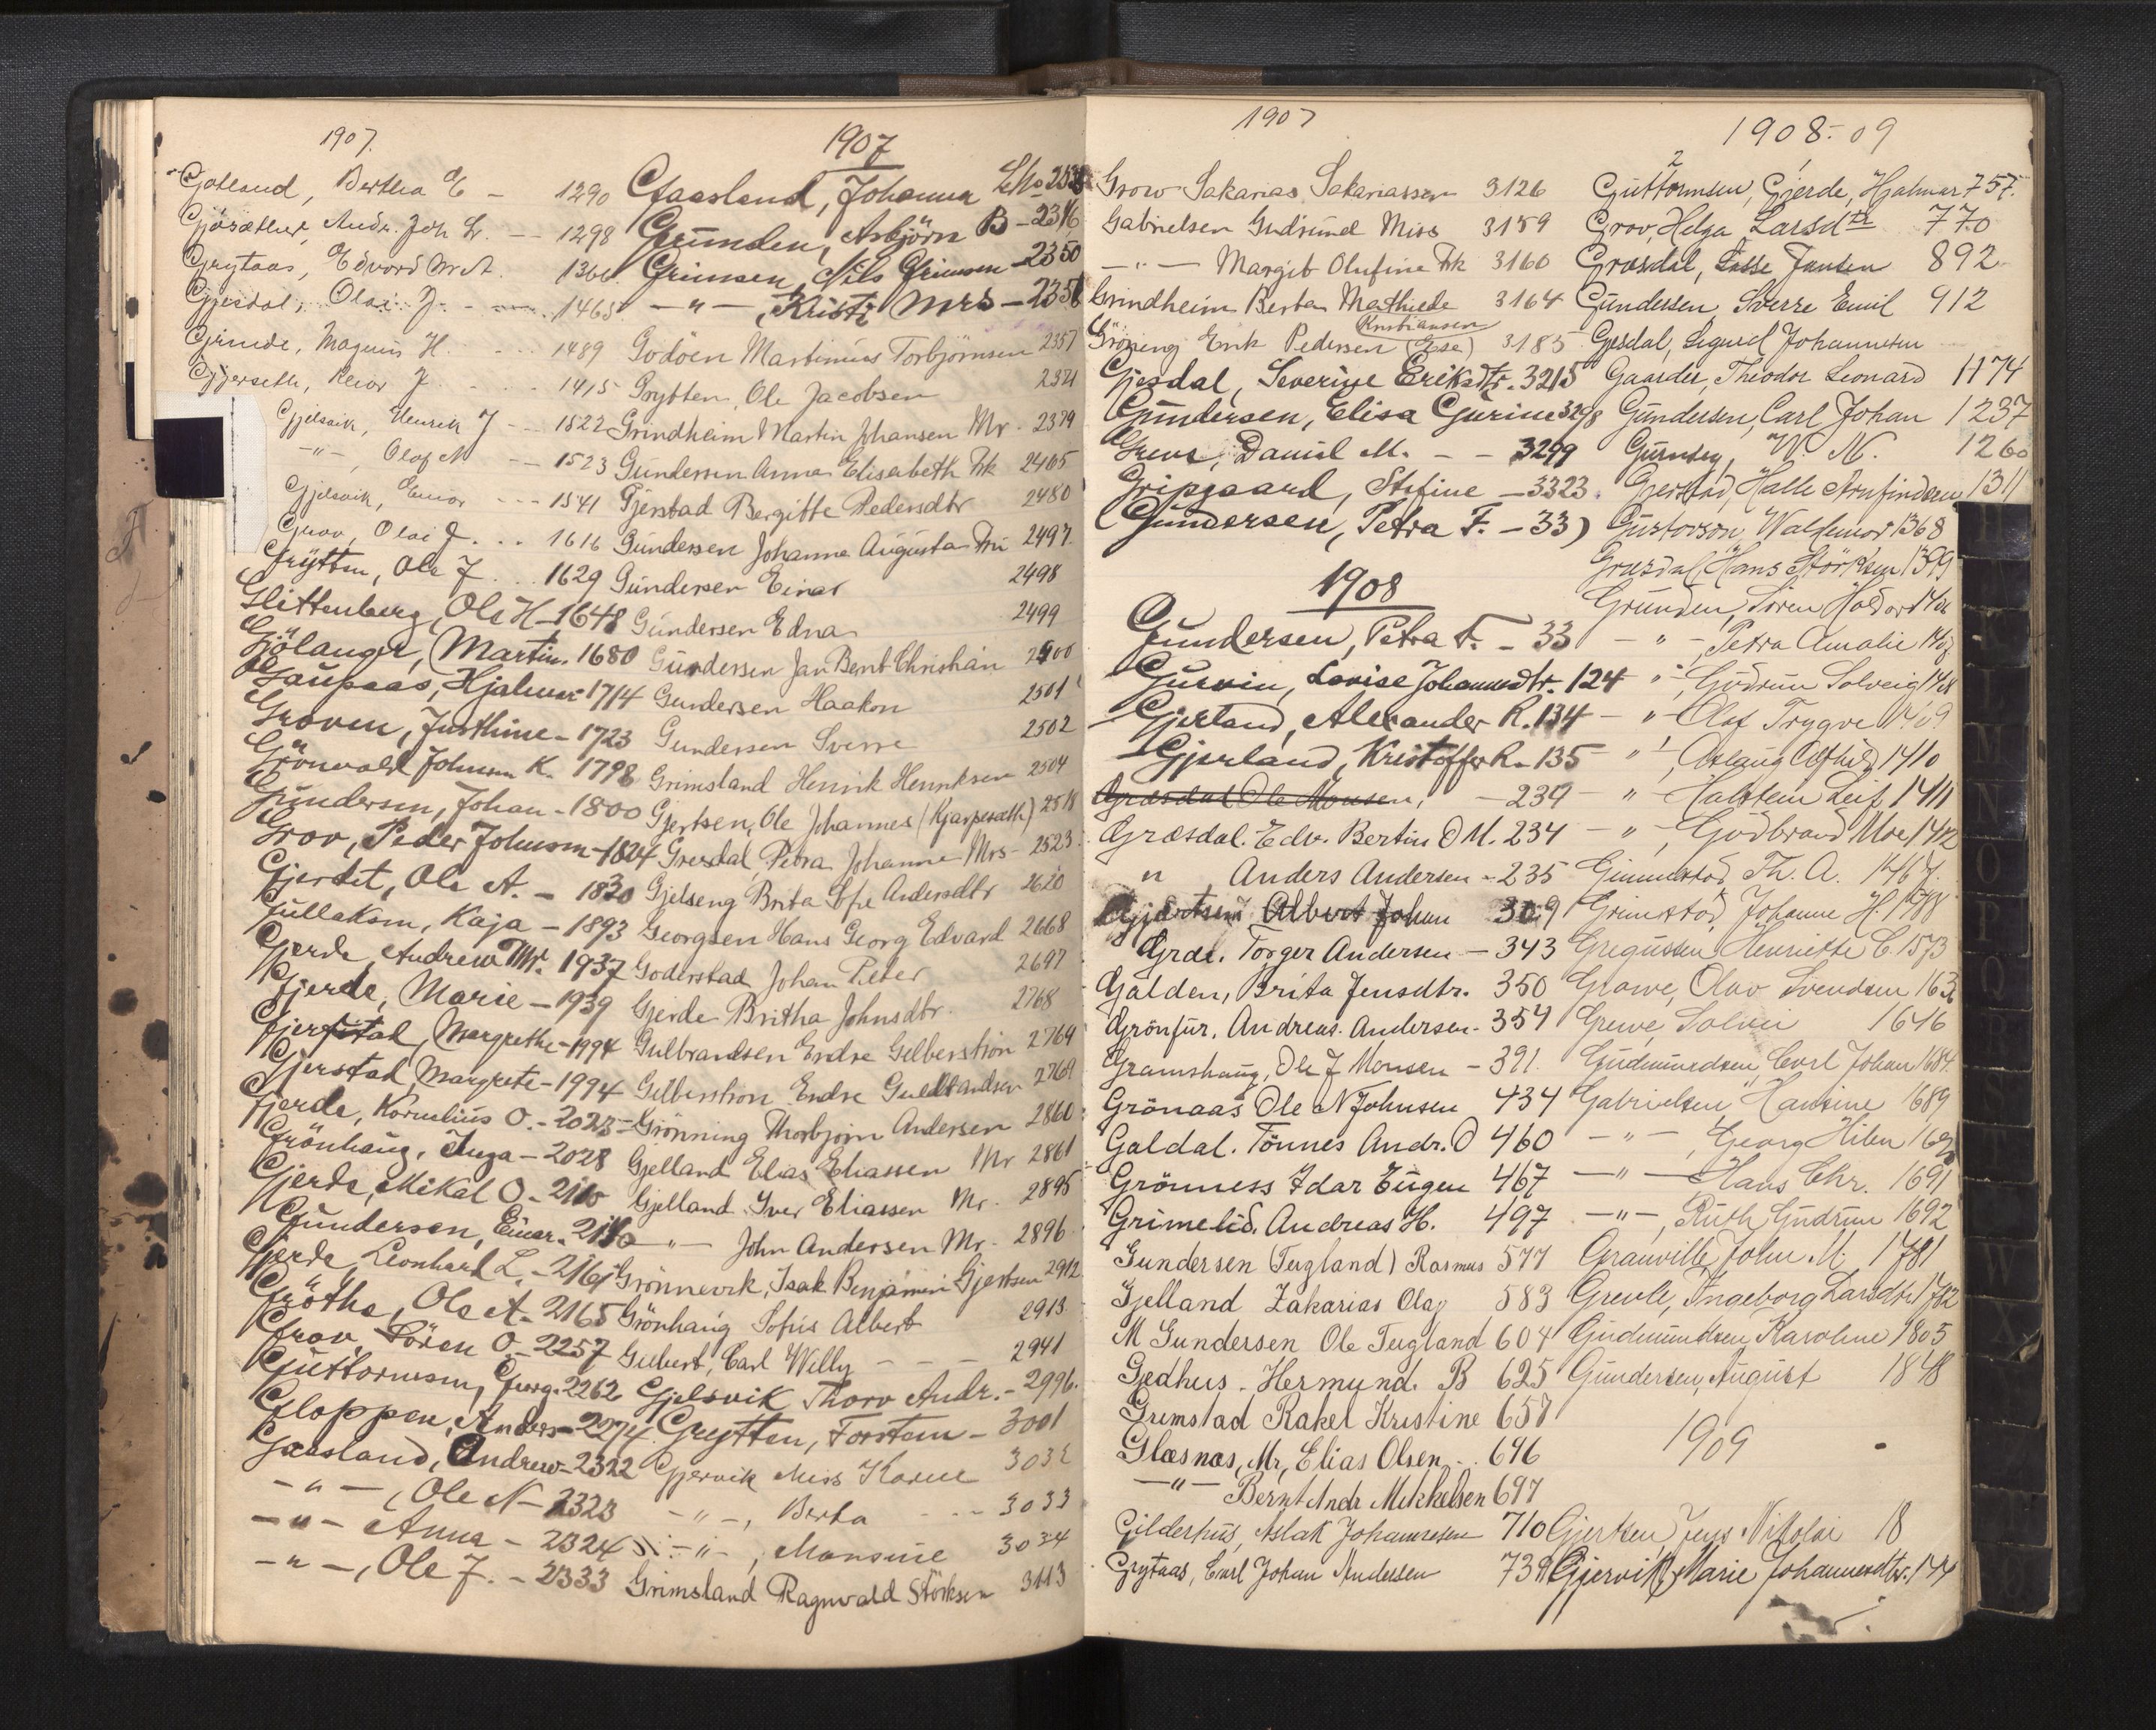 1907.
Gotland, Bertha E - 1290
Gjösæther, Andr. Joh L. - 1298
Grytaas, Edvard M. A. 1366
Gjesdal, Olai J. - 1465
Grinde, Magnus H. - - - 1489
Gjerseth, J. - - - 1415
Gjelsvik, Henrik J - - 1522
-"-, Olaf M - - 1523
Gjelsvik, Einar - - - 1541
Grov, Olai J. . . 1616
Grytten, Ole J. . . 1629
Glittenberg, Ole H - 1648
Gjölanger, Martin. 1680
Gaupaas, Hjalmar 1714
Groven, Justhine - 1723
Grönvold Johnsen K. 1798
Gundersen, Johan - 1800
Grov, Peder Johnsen - 1824
Gjertet, Ole A. - 1830
Gullaksen, Kaja - 1893
Gjerde, Andrew Mr. 1937
Gjerde, Marie - 1939
Gjerstad, Margrethe - 1994
Gjerstad, Margrete - 1994
Gjerde, Kornelius O. - 2023
Grönhaug, Inga - 2028
Gjerde, Mikal O - 2110
Gundersen, Einar. 2110
Gjerde, Leonhard L. - 2161
Gröthe, Ole A. 2165
Grov, Sören O. - 2257
Guttormsen, Georg. 2262
Gloppen, Anders - 2274
Gaasland, Andrew - 2322
-"-, Ole N - 2323
-"- Anna - 2324
-"-, Ole J. - 2333
1907
Gaasland, Johanna
Grunden, Asbjörn B - 2346
Grimsen, Nils Grimsen - 2350
-"-, Kristi Mrs - 2356
Godöen Martinius Torbjörnsen 2357
Grytten, Ole Jacobsen 2321
Grindheim Martin Johansen Mr. 2379
Gundersen Anna Elisabeth Frk 2465
Gjerstad Bergitte Pedersdtr 2480
Gundersen Johanne Augusta Fru 2497
Gundersen Einar 2498
Gundersen Edna 2499
Gundersen Jan Bernt Christian 2500
Gundersen Haakon 2501
Gundersen Sverre 2502
Grimsland Henrik Henriksen 2504
Gjertsen, Ole Johannes (Kjarpeseth) 2518
Gresdal Petra Johanne Mrs - 2523
Gjelseng Brita Sofie Andersdtr 2620
Georgsen Hans Georg Edvard 2668
Goderstad Johan Peter 2697
Gjerde Britha Johnsdtr. 2768
Gulbrandsen Endre Gilbertson 2764
Gilbertson Endre Gulbrandsen 2764
Grönning Thorbjorn Andersen 2860
Gjelland Elias Eliassen Mr 2861
Gjelland Iver Eliassen Mr. 2895
-"- John Andersen Mr. 2896
Grönnevik, Isak Benjamin Gjertsen 2912
Grönhaug Sofus Albert 2913
Gilbert, Carl Willy - - - 2941
Gjelsvik Thorv Andr. - 2996.
Grytten, Torstein - 3001
Gjervik Miss Karine 3032
-"-, Berta - - - 3033
-"-, Monsine 3034
Grimsland Ragnvald Störksen 3113
1907
Grow Sakarias Sakariassen 3126
Gabrielsen Gudrund Miss 3159
-"- Margit Olufine Frk 3160
Grindheim Berta Mathilde 3164
Kristiansen
Gröning Erik Pedersen 3185
Gjesdal, Severine Eriksdtr. 3215
Gundersen, Elisa Gurine 3298
Greve, Daniel M. - - 3299
Gripgaard, Stefine - 3323
(Gundersen, Petra F. - 33)
1908
Gundersen, Petra F. - 33
Gurvin, Lovise Johannesdtr. 124
Gjerland, Alexander R. 134
Gjerland, Kristoffer R. 135
Græsdal Ole Monsen, - 234
Græsdal. Edv. Bertin O M. 234
" Anders Andersen - 235
Gjertsen Albert Johan 309
Grde. Torger Andersen - 343
Galden, Brita Jensdtr. 350
Grönfur, Andreas Andersen - 354
Gramshaug, Ole J Monsen - 391
Grönaas Ole N Johnsen 434
Galdal. Tönnes Andr. O 460
Grönness Idar Eugen 467
Grimelid. Andreas H. 497
Gundersen (Tugland) Rasmus 577
Gjelland Zakarias Olaj 583
M Gundersen Ole Tugland 604
Gjedhus. Hermund. B 625
Grimstad Rakel Kristine 657
Glæsnæs, Mr, Elias Olsen . . 696
-"- Bernt Andr Mikkelsen 697
Gilderhus, Aslak Johannesen 710
Grytaas, Carl Johan Andersen
1908-09
Guttormsen, Gjerde, Hjalmar 757.
Grov, Helga Larsdtr 770
Græsdal, Lasse Jansen 892
Gundersen, Sverre Emil 912
Gjesdal, Sigurd Johannesen
Gaarder, Theodor Leonard 1174
Gundersen, Carl Johan 1237
Gurnsey, W. M. 1260
Gjerstad, Halle Arnfindsen 1311
Gustavson, Waldemar 1368
Græsdal, Hans Störksen 1399
Grunden, Sören
-"-, Petra Amalie
-", Gudrun Solveig 1408
-" Olaf Trygve 1409
-", Aslaug Alfhild 1410
-" Halstein Leif 1411
-", Godbrand Moe 1412
Gimmestad, Th. A. 1467.
Grimstad, Johanne H. 1488
Gregussen, Henriette C. 1573
Grawe, Olav Svendsen
Grewe, Solvei 1646
Gudmundsen, Carl Johan 1684.
Gabrielsen, Hansine 1689
-"-, Georg Hilen
-"- Hans Chr. 1691
-"-, Ruth Gudrun 1692
Granville, John M. 1781
Grevle, Ingeborg Larsdtr 1782
Gudmundsen Karoline 1805
Gundersen, August 1848
1909
Gjertsen, Jens Nikolai 18
Gjervik, Marie Johannesdtr. 144
M
N
O
P
Q
W
X